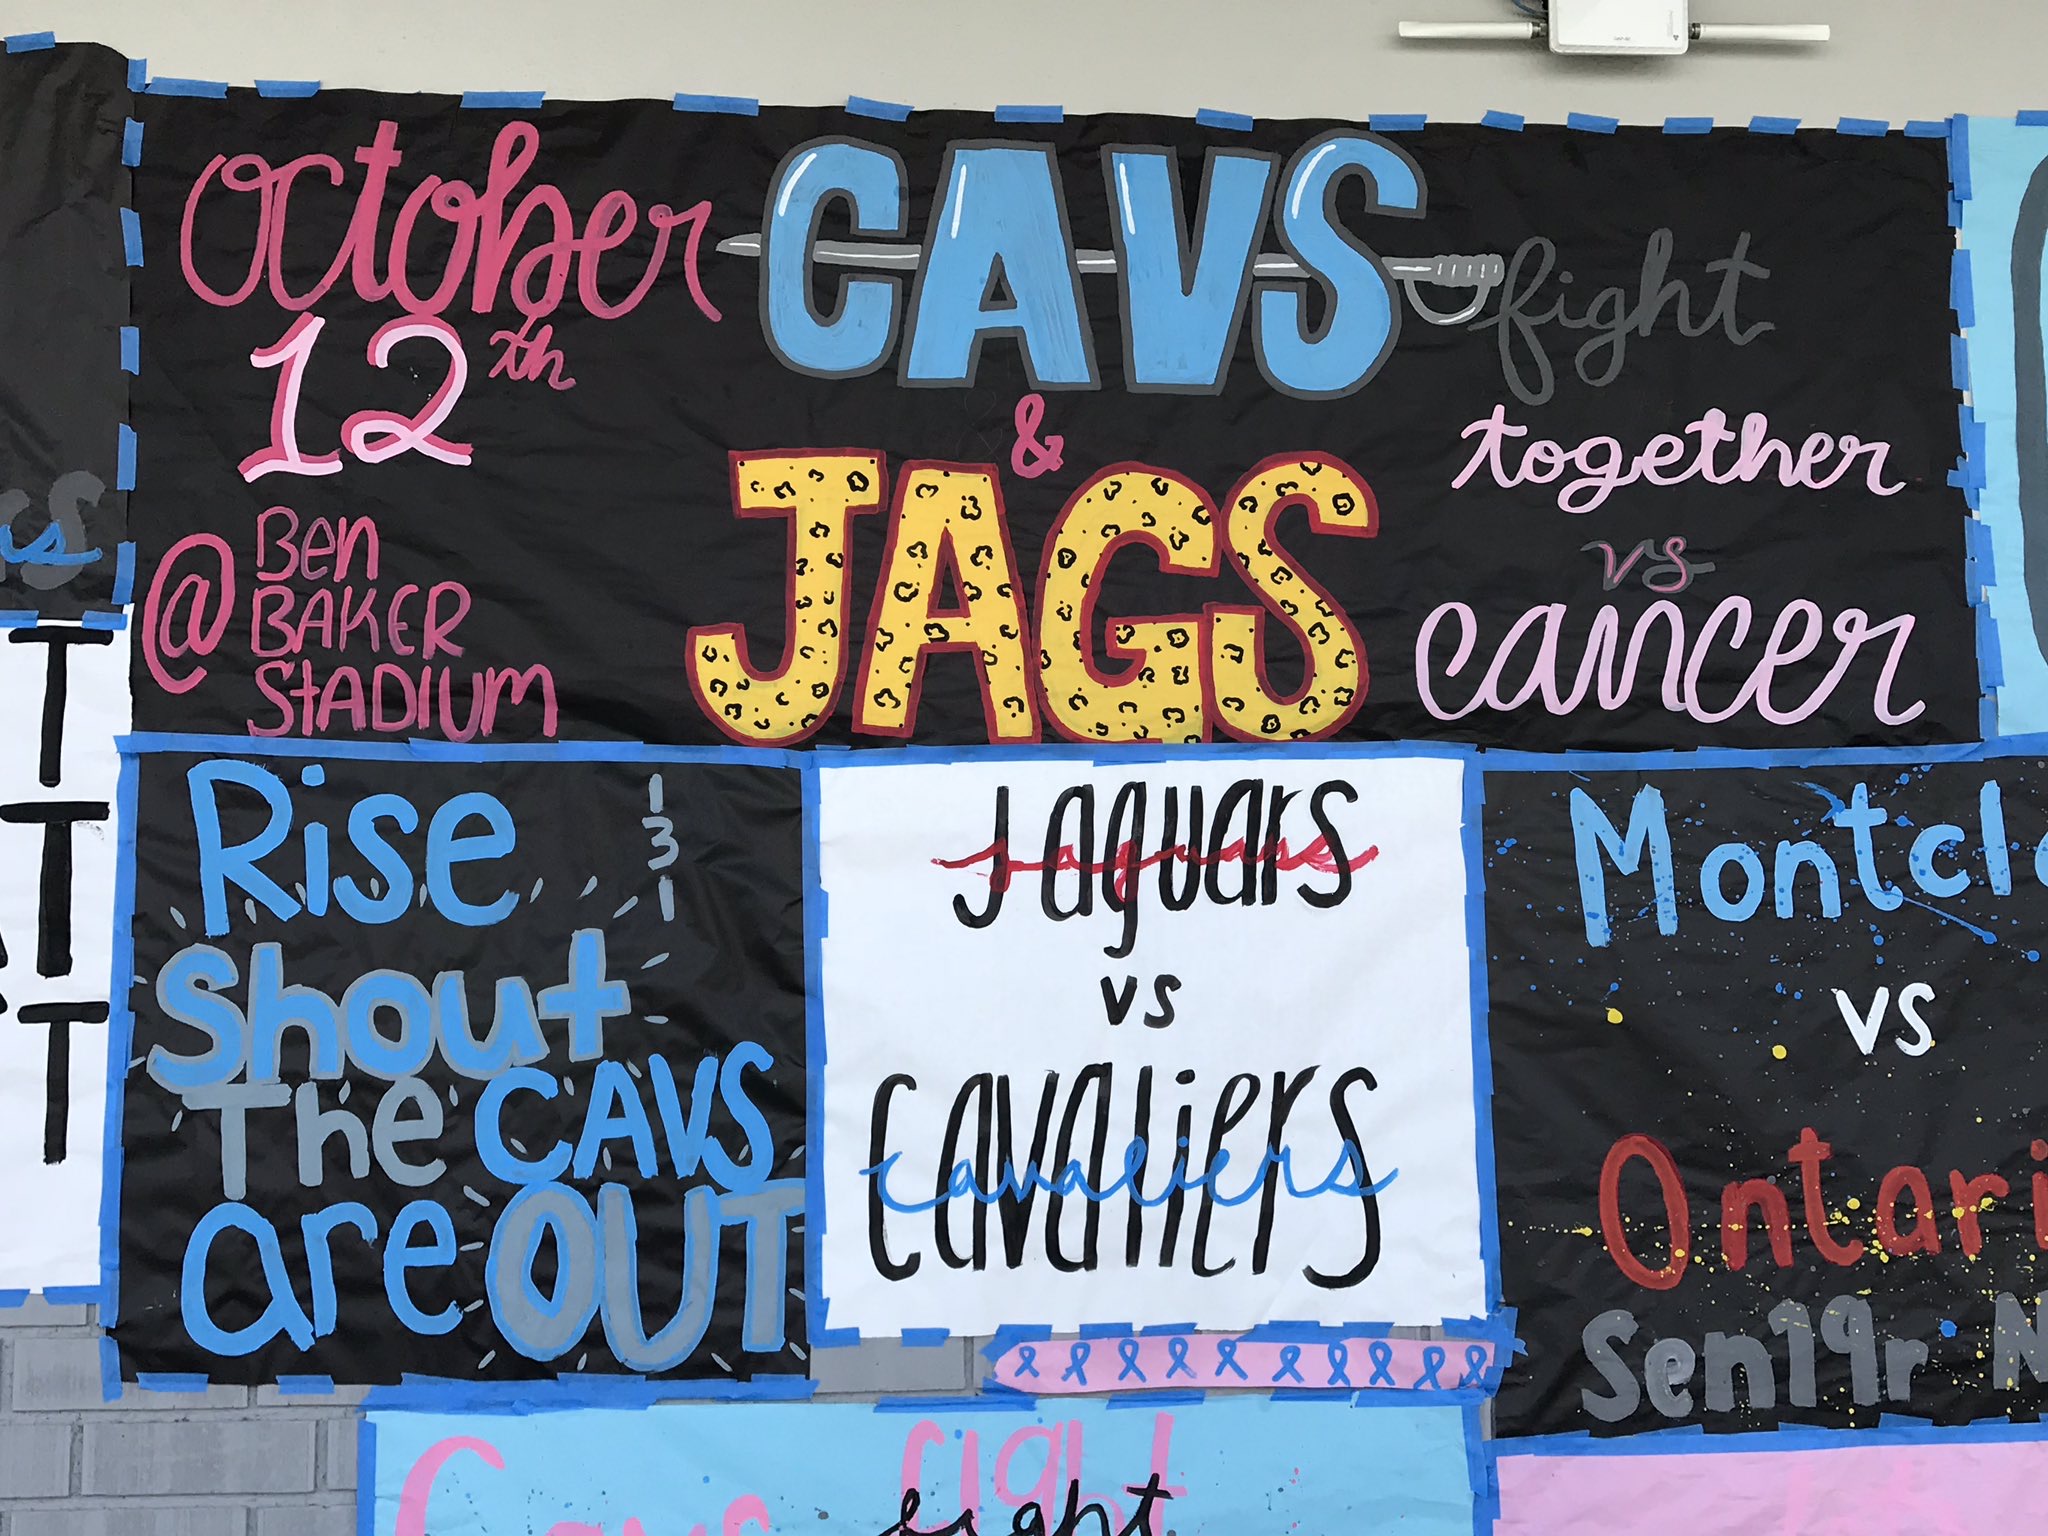 October
12th
@ Ben
BAKER
STADIUM
CAVS
&
JAGS
fight
together
vs
cancer
Rise
Shout
The CAVS
are OUT
1
3
1
Jaguars
Jaguars
vs
Cavaliers
Cavaliers
Montcl
vs
Ontari
Sen19r N
T
T
T
Cavs
fight
fight